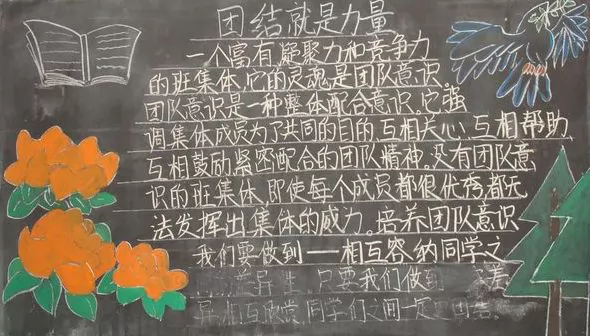 团结就是力量
一个富有凝聚力和竞争力
的班集体,它的灵魂是团队意识
团队意识是一种整体配合意识,它强
调集体成员为了共同的目的,互相关心、互相帮助、
互相鼓励紧密配合的团队精神。没有团队意
识的班集体,即使每个成员都很优秀都无
法发挥出集体的威力。培养团队意识
我们要做到一一相互容纳同学之
差异性,只要我们做到
异,相互欣赏,同学们之间一定